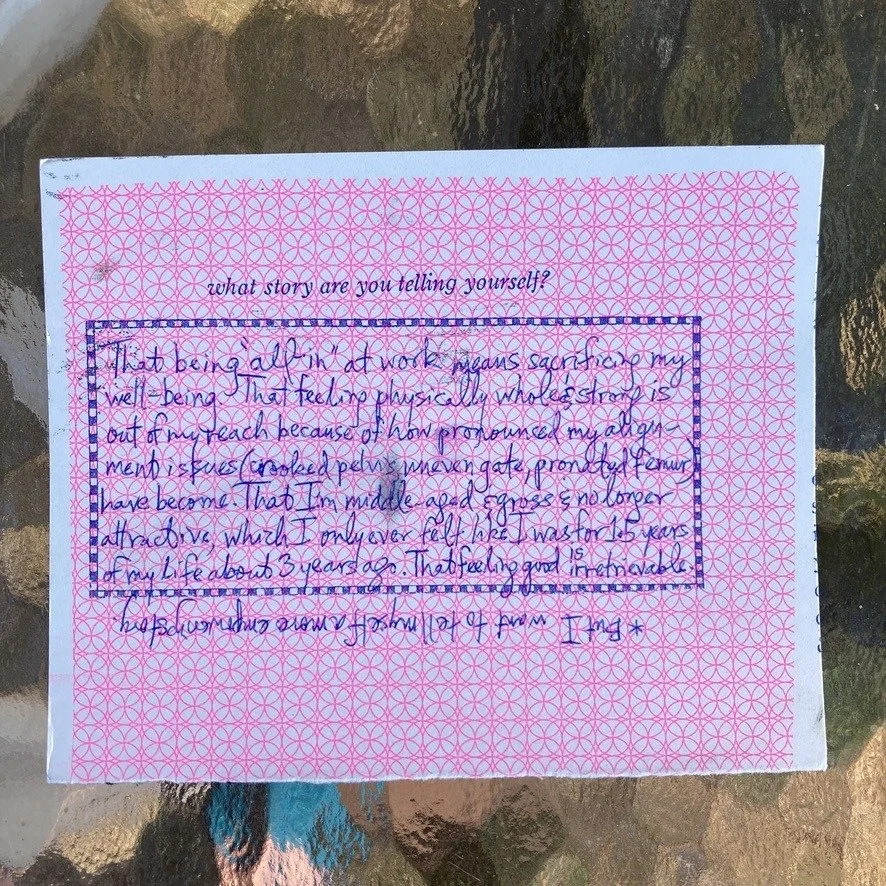 what story are you telling yourself?
That being "all-in" at work means sacrificing my
well-being. That feeling physically whole & strong is
out of my reach because of how pronounced my align-
ment issues (crooked pelvis, uneven gate, pronated femur)
have become. That I'm middle-aged & gross & no longer
attractive, which I only ever felt like I was for 1.5 years
of my life about 3 years ago. That feeling good is irretrievable.
* But I want to tell myself a more empowering story